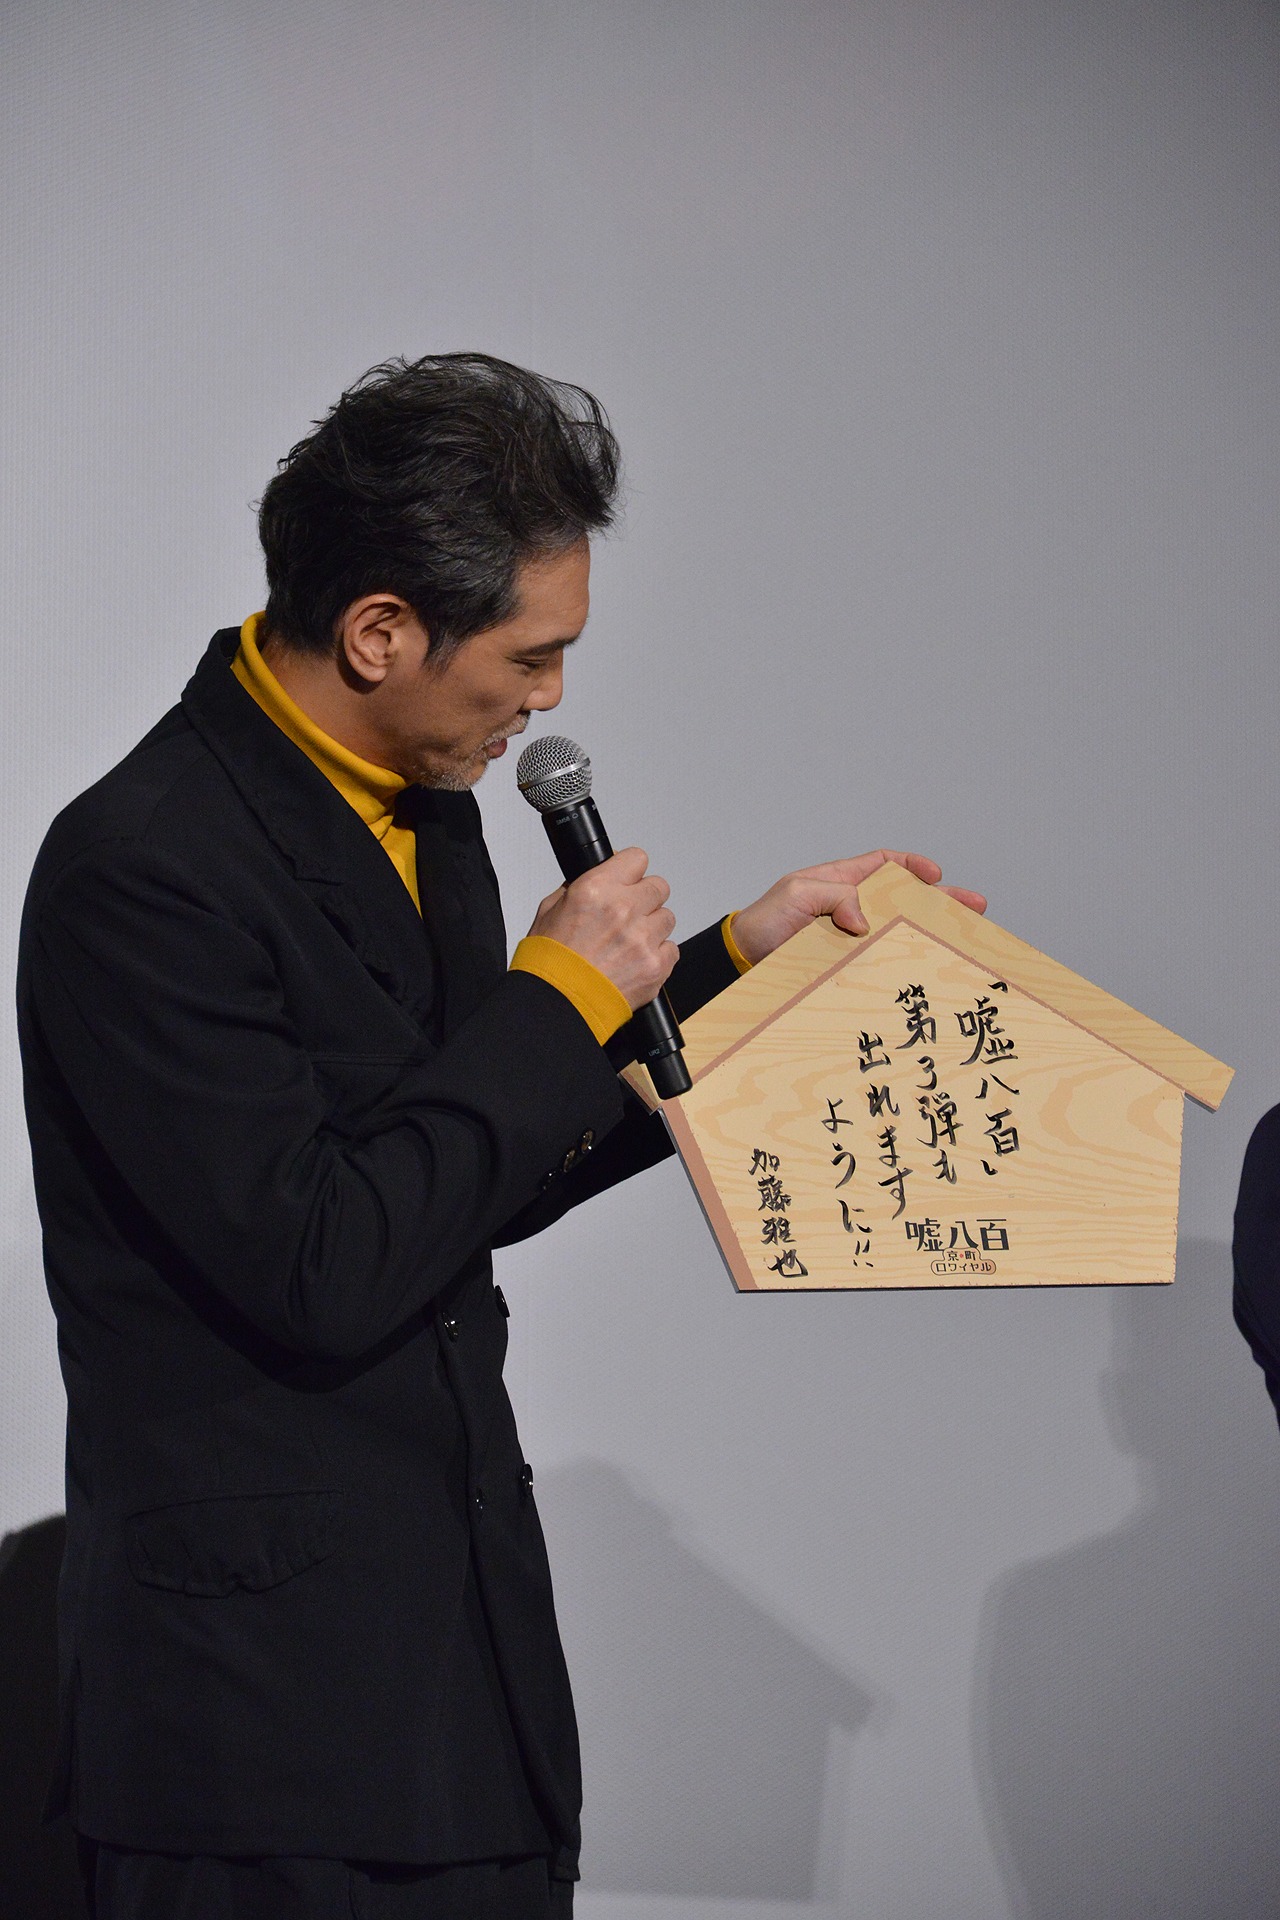 「嘘八百」
第3弾も
出れます
ように!!
加藤雅也
嘘八百
京町
ロワイヤル